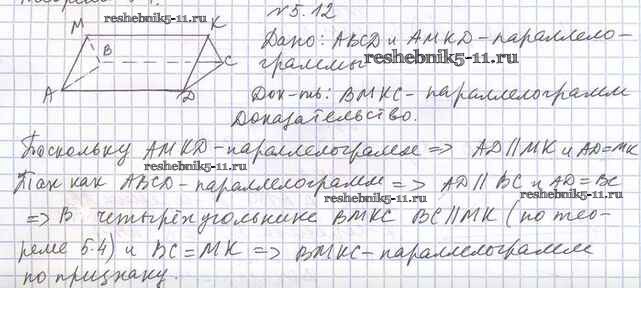 Теорема 5.4.
№5.12
Дано: ABCD и AMKD - параллело-
граммы
Док-ть: BMKC - параллелограмм
Доказательство.
Поскольку AMKD - параллелограмм => AD || MK и AD = MK
Так как ABCD - параллелограмм => AD || BC и AD = BC
=> В четырёхугольнике BMKC BC || MK (по тео-
реме 5.4) и BC = MK => BMKC - параллелограмм
по признаку.
M
K
B
C
A
D
reshebnik5-11.ru
reshebnik5-11.ru
reshebnik5-11.ru
reshebnik5-11.ru